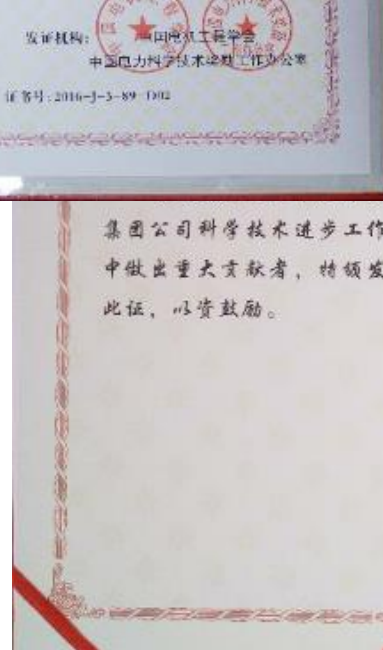 发证机构：中国电机工程学会
中国电力科学技术奖励工作办公室
证书号：2016-J-3-89-D02
集团公司科学技术进步工作
中做出重大贡献者，特颁发
此证，以资鼓励。